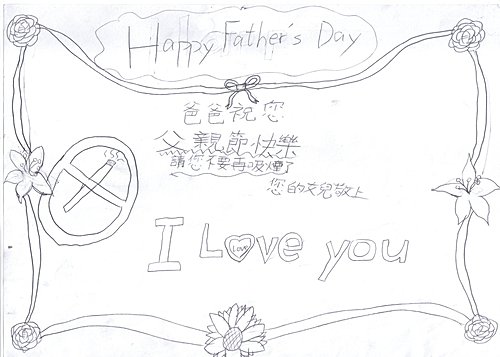 Happy Father's Day
爸爸祝您
父親節快樂
請您不要再吸煙了
您的女兒敬上
I Love you
Love